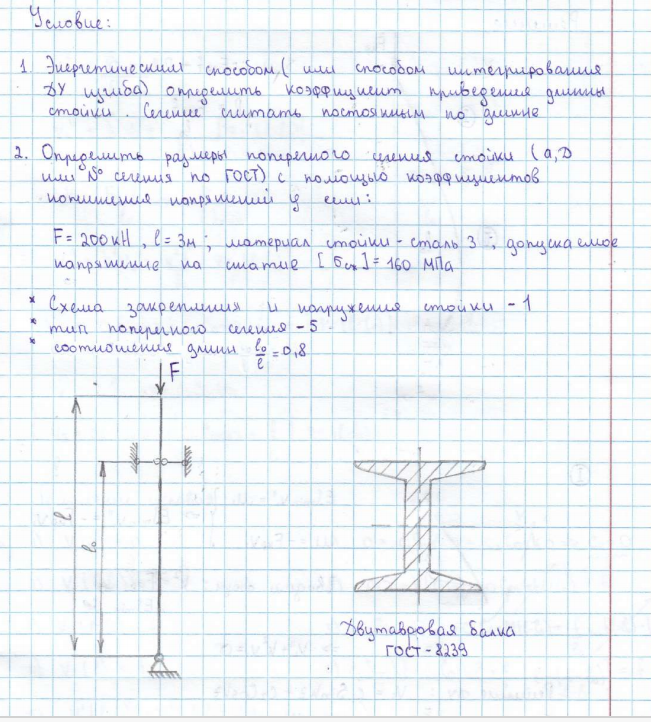 Условие:
1. Энергетическим способом ( или способом интегрирования
ДУ изгиба) определить коэффициент приведения длины
стойки. Сечение считать постоянным по длине
2. Определить размеры поперечного сечения стойки (a, D
или № сечения по ГОСТ) с помощью коэффициентов
понижения напряжений φ если:
F = 200 кН, l = 3м; материал стойки - сталь 3; допускаемое
напряжение на сжатие [σсж] = 160 МПа
* Схема закрепления и нагружения стойки - 1
* тип поперечного сечения - 5
* соотношения длин l₀/l = 0,8
F
l
l₀
Двутавровая балка
ГОСТ - 8239